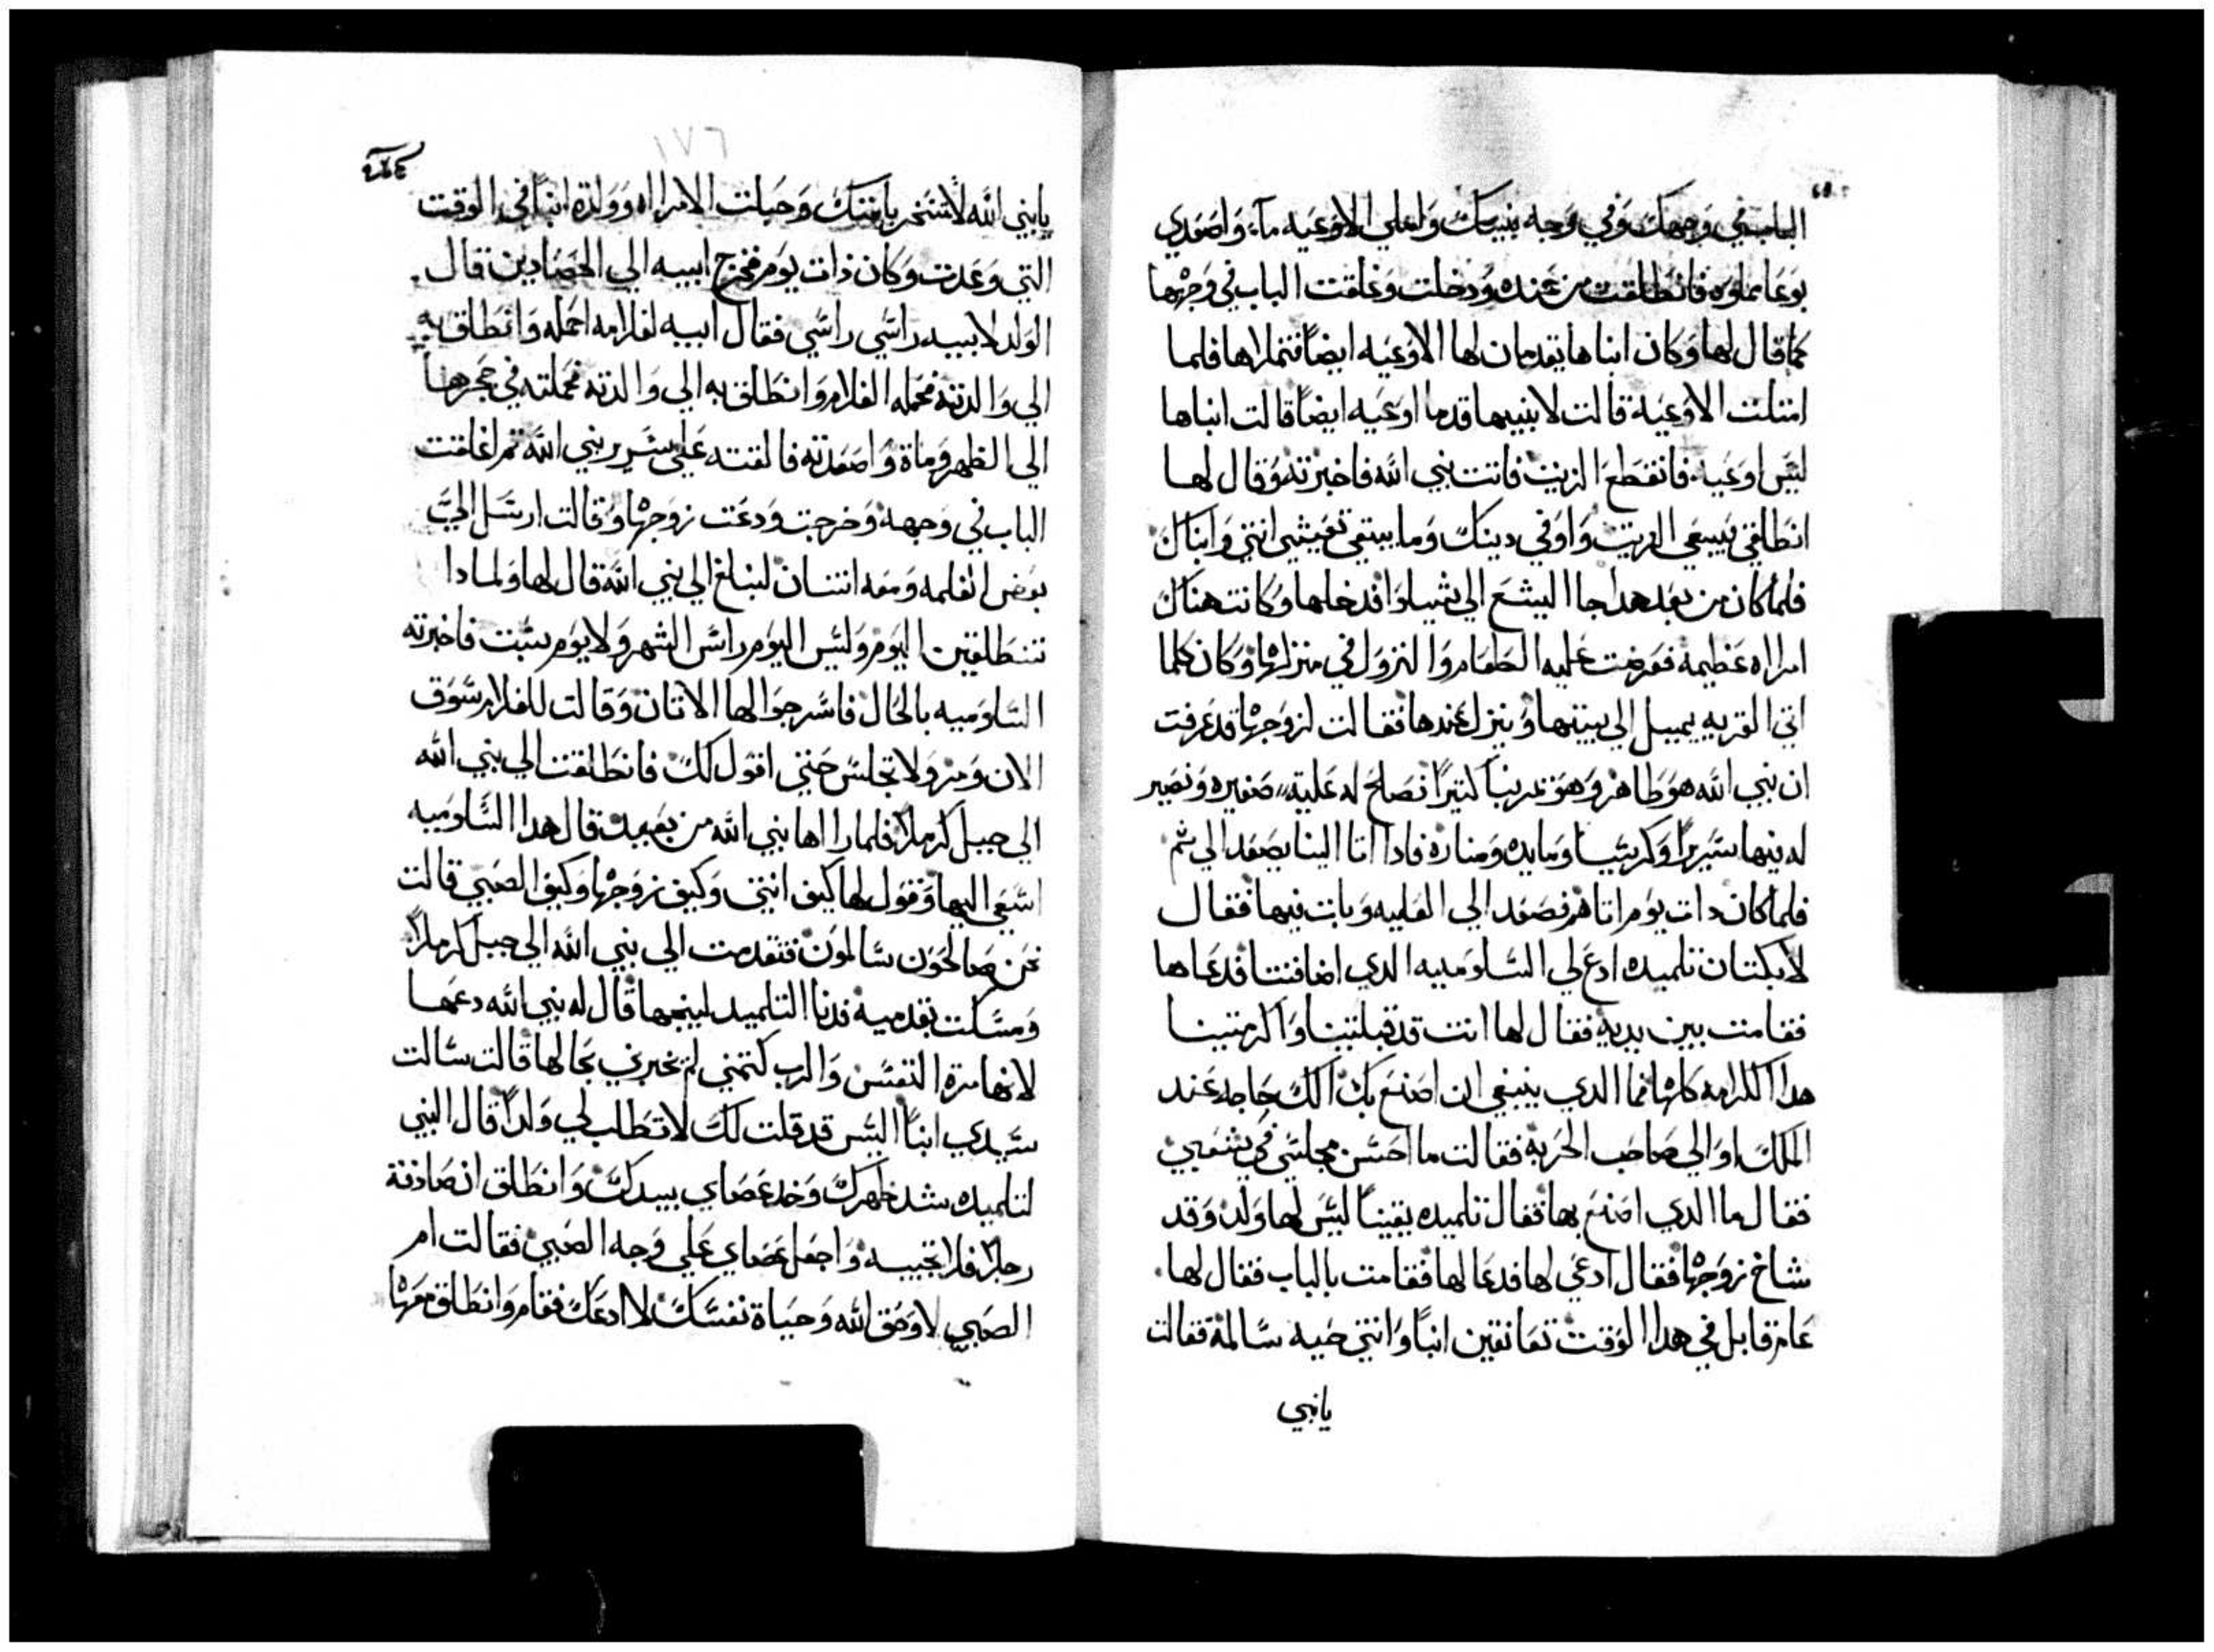 الباب في وجهك وفي وجه بنيك واملي الاوعيه مآء واصعدي
بوعا مملوه فانطلقت من عنده ودخلت وغلقت الباب في وجهها
كما قال لها وكان ابناها يقدمان لها الاوعيه ايضاً فتملاها فلما
امتلت الاوعية قالت لابنيها قدما اوعيه ايضاً قالت ابناها
ليس اوعيه فانقطع الزيت فاتت نبي الله فاخبرته وقال لها
انطلقي فبيعي الزيت واوفي دينك وما يبتقي تعيشي انتي وابناك
فلما كان من بعد هدا جا اليشع الي شيلوا فدخلها وكانت هناك
امراه عظيمة فعرضت عليه الطعام والنزول في منزلها وكان كلما
اتي القريه يميل الي بيتها وينزل عندها فقالت لزوجها قد عرفت
ان نبي الله هو طاهر وهو غدربنا كثيراً نصلح له علية صغيره ونصير
له فيها سريراً وكرسيا ومايده ومناره فادا اتا الينا يصعد الي ثم
فلما كان دات يوم اتاهم فصعد الي العليه وبات فيها فقال
لايكتان تلميده ادع لي السلوميه الدي اضافتنا فدعاها
فقامت بين يديه فقال لها انت قد قبلتينا واكرمتينا
هدا الكرامه كلها فما الدي ينبغي ان اصنع بك الك حاجه عند
الملك او الي صاحب الحربة فقالت ما احسن مجلسي في شعبي
فقال ما الدي اصنع بها فقال تلميده يقيناً ليس لها ولد وقد
شاخ زوجها فقال ادعي لها فدعا لها فقامت بالباب فقال لها
عام قابل في هدا الوقت تعانقين ابناً وانتي حيه سالمة فقالت
يا نبي
١٧٦
يا نبي الله لا تسخر بامتك وحبلت الامراه وولدة ابناً في الوقت
التي وعدت وكان ذات يوم فخرج ابيه الي الحصادين قال
الولد لابيه راسي راسي فقال ابيه لغلامه احمله وانطلق به
الي والدته فحمله الغلام وانطلق به الي والدته فحملته في حجرها
الي الظهر ومات واصعدته فالقته علي سرير نبي الله ثم اغلقت
الباب في وجهه وخرجت ودعت زوجها وقالت ارسل اليَّ
بعض الغلمه ومعه اتنان لنبلغ الي نبي الله قال لها ولمادا
تنطلقين اليوم وليس اليوم راس الشهر ولا يوم سبت فاخبرته
السلوميه بالحال فاسرجوا لها الاتان وقالت للغلام سوق
الان ومر ولا تجلس حتي اقول لك فانطلقت الي نبي الله
الي جبل كرملا فلما راها نبي الله من بعيد قال هدا السلوميه
اسعي اليها وقول لها كيف انتي وكيف زوجها وكيف الصبي قالت
نحن صالحون سالمون فتقدمت الي نبي الله الي جبل كرملا
ومسكت بقدميه فدنا التلميد لينجها قال له نبي الله دعها
لانها مرة النفس والرب كتمني لم يخبرني بحالها قالت سالت
سيدي ابناً اليس قد قلت لك لا تطلب لي ولداً قال النبي
لتلميده شد ظهرك وخد عصاي بيدك وانطلق ان صادفة
رجلاً فلا تجيبه واجعل عصاي علي وجه الصبي فقالت ام
الصبي لا وحق الله وحياة نفسك لا ادعك فقام وانطلق معها